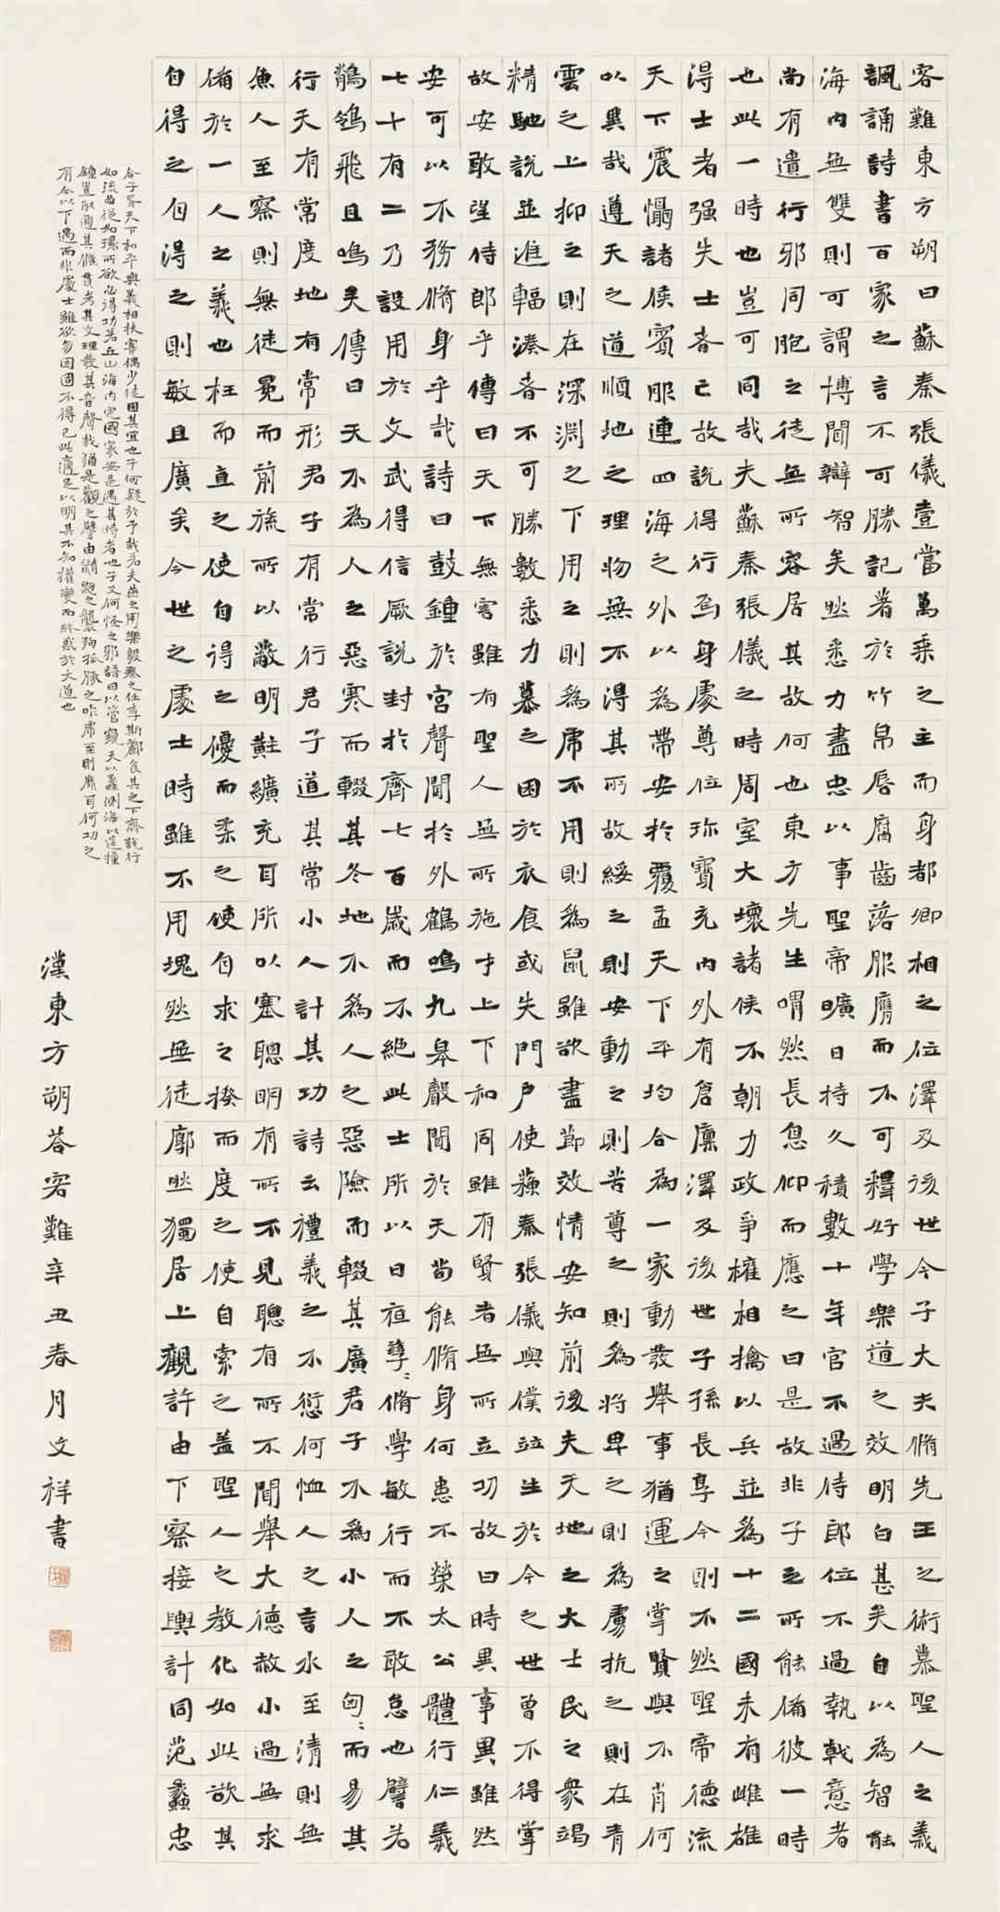 客難東方朔曰蘇秦張儀壹當萬乘之主而身都卿相之位澤及後世今子大夫脩先王之術慕聖人之義
諷誦詩書百家之言不可勝記著於竹帛唇腐齒落服膺而不可釋好學樂道之效明白甚矣自以為智能
海內無雙則可謂博聞辯智矣然悉力盡忠以事聖帝曠日持久積數十年官不過侍郎位不過執戟意者
尚有遺行邪同胞之徒無所容居其故何也東方先生喟然長息仰而應之曰是故非子之所能備彼一時
也此一時也豈可同哉夫蘇秦張儀之時周室大壞諸侯不朝力政爭權相擒以兵並為十二國未有雌雄
得士者强失士者亡故說得行焉身處尊位珍寶充內外有倉廩澤及後世子孫長享今則不然聖帝德流
天下震慴諸侯賓服連四海之外以為帶安於覆盂天下平均合為一家動發舉事猶運之掌賢與不肖何
以異哉遵天之道順地之理物無不得其所故綏之則安動之則苦尊之則為將卑之則為虜抗之則在青
雲之上抑之則在深淵之下用之則為虎不用則為鼠雖欲盡節效情安知前後夫天地之大士民之眾竭
精馳說並進輻湊者不可勝數悉力慕之困於衣食或失門戶使蘇秦張儀與僕竝生於今之世曾不得掌
故安敢望侍郎乎傳曰天下無害雖有聖人無所施才上下和同雖有賢者無所立功故曰時異事異雖然
安可以不務脩身乎哉詩曰鼓鐘於宮聲聞於外鶴鳴九皋聲聞於天尚能脩身何患不榮太公體行仁義
七十有二乃設用於文武得信厥說封於齊七百歲而不絕此士所以日夜孳〻脩學敏行而不敢怠也譬若
鶺鴒飛且鳴矣傳曰天不為人之惡寒而輟其冬地不為人之惡險而輟其廣君子不為小人之匈〻而易其
行天有常度地有常形君子有常行君子道其常小人計其功詩云禮義之不愆何恤人之言水至清則無
魚人至察則無徒冕而前旒所以蔽明黈纊充耳所以塞聰明有所不見聰有所不聞舉大德赦小過無求
備於一人之義也枉而直之使自得之優而柔之使自求之揆而度之使自索之蓋聖人之教化如此欲其
自得之自得之則敏且廣矣今世之處士時雖不用塊然無徒廓然獨居上觀許由下察接輿計同范蠡忠
合子胥天下和平與義相扶寡偶少徒固其宜也子何疑於予哉若夫燕之用樂毅秦之任李斯酈食其之下齊說行
如流曲從如環所欲必得功若丘山海內定國家安是遇其時者也子又何怪之邪語曰以管窺天以蠡測海以筳撞
鐘豈能通其條貫考其文理發其音聲哉猶是觀之譬由鼱鼩之襲狗孤豚之咋虎至則靡耳何功之
有今以下愚而非處士雖欲勿困固不得已此適足以明其不知權變而終惑於大道也
漢東方朔答客難辛丑春月文祥書